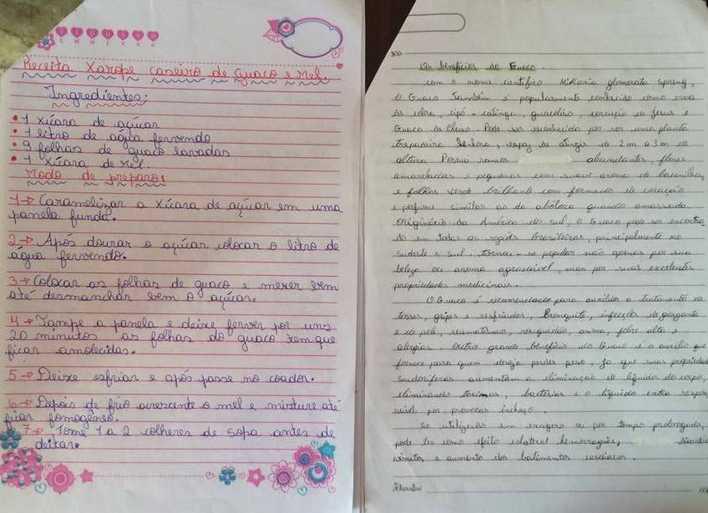 Receita Xarope caseiro de Guaco e Mel.
Ingredientes:
• 1 xícara de açúcar
• 1 litro de água fervendo
• 9 folhas de guaco lavadas
• 1 xícara de mel.
Modo de preparo:
1→ Caramelizar a xícara de açúcar em uma
panela funda.
2→ Após dourar o açúcar colocar o litro de
água fervendo.
3→ Colocar as folhas de guaco e mexer bem
até desmanchar bem o açúcar.
4→ Tampe a panela e deixe ferver por uns
20 minutos as folhas do guaco tem que
ficar amolecidas.
5→ Deixe esfriar e após passe no coador.
6→ Depois de frio acrescente o mel e misture até
ficar homogêneo.
7→ Tome 1 a 2 colheres de sopa antes de
deitar.
Os benefícios do Guaco
com o nome científico Mikania glomerata Spreng,
o Guaco também é popularmente conhecido como erva
de cobra, cipó-catinga, guacolão, coração de Jesus e
Guaco de Cheiro. Pode ser reconhecido por ser uma planta
trepadeira, capaz de atingir de 2 m a 3 m de
altura. Possui ramos abundantes, flores
amareladas e pequenas com suave aroma de baunilha,
e folhas verde brilhante com formado de coração
e perfume similar ao da abóbora quando amassada.
Originário da América do sul, o Guaco pode ser encontra
do em todas as regiões brasileiras, principalmente no
sudeste e sul. Tornou-se popular não apenas por sua
beleza ou aroma agradável, mas por suas excelentes
propriedades medicinais.
O Guaco é recomendado para auxiliar o tratamento da
tosse, gripes e resfriados, bronquite, infecções da garganta
e da pele, reumatismos, rouquidão, asma, febre alta e
alergias. Outro grande benefício do Guaco é o auxílio que
fornece para quem deseja perder peso, já que suas propriedades
sudoríferas aumentam a eliminação de líquidos do corpo,
eliminando toxinas, bactérias e o líquido extra
por provocar inchaço.
Se utilizado em exagero ou por tempo prolongado,
pode ter como efeito colateral hemorragias,
vômitos e aumento dos batimentos cardíacos.